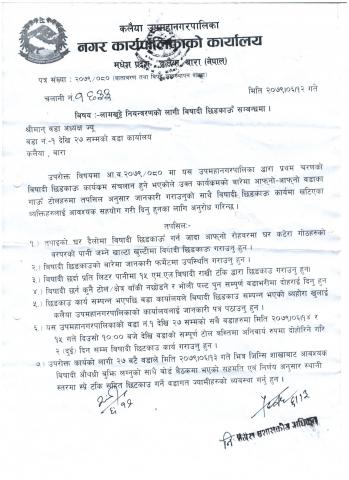 कलैया उपमहानगरपालिका
नगर कार्यपालिकाको कार्यालय
मधेश प्रदेश, कलैया, बारा (नेपाल)
पत्र संख्या : २०७९/०८०
चलानी नं. १६३३
मिति २०७९/०६/१२ गते
विषय :- लामखुट्टे नियन्त्रणको लागी बिषादी छिडकाऊँ सम्बन्धमा ।
श्रीमान् वडा अध्यक्ष ज्यू
वडा नं.-१ देखि २७ सम्मको वडा कार्यालय
कलैया , बारा
उपरोक्त विषयमा आ.व.२०७९/०८० मा यस उपमहानगरपालिका द्वारा प्रथम चरणको
बिषादी छिडकाऊ कार्यक्रम संचलान हुने भएकोले उक्त कार्यक्रमको बारेमा आफ्नो-आफ्नो वडाका
गाऊँ टोलहरुमा तपसिल अनुसार जानकारी गराउनुको साथै बिषादी छिडकाऊ कार्यमा खटिएका
व्यक्तिहरुलाई आवश्यक सहयोग गरी दिनु हुनका लागि अनुरोध गरिन्छ ।
तपसिल:-
१.) तपाइको घर दैलोमा बिषादी छिडकाऊँ गर्न जादा आफ्नो रोहवरमा घर कटेरा गोठहरुको
वरपरको पानी जम्ने खाल्टा खुल्टीमा बिषादी छिडकाऊ गराउनु हुन ।
२.) बिषादी छिडकाउको बारेमा जानकारी फर्मेटमा उपस्थिति गराउनु हुन ।
३.) बिषादी छर्दा प्रति लिटर पानीमा १५ एम.एल बिषादी राखी टंकि द्वारा छिडकाउ गराउनु हुन।
४.) बिषादी छर्न कुनै टोल/क्षेत्र बाँकी नछोडने र भोली पल्ट पुन सम्पूर्ण वडाभरीमा दोहराई दिनु हुन
५.) छिडकाउ कार्य सम्पन्न भएपछि वडा कार्यालयले बिषादी छिडकाउ सम्पन्न भएको व्यहोरा खुलाई
कलैया उपमहानगरपालिकाको कार्यालयलाई जानकारी पत्र पठाउनु हुन ।
६.) यस उपमहानगरपालिकाको वडा नं.१ देखि २७ सम्मको सबै वडाहरुमा मिति २०७९/०६/१४ र
१५ गते दिउसो १०.०० बजे देखि वडाको सम्पूर्ण टोल बस्तिमा अनिवार्य रुपमा दोहोरिने गरि
२ (दुई) दिन सम्म बिषादी छिटकाउ कार्य गराउनु हुन ।
७.) उपरोक्त कार्यको लागी २७ बटै वडाले मिति २०७९/०६/१३ गते भित्र जिन्सि शाखाबाट आवश्यक
बिषादी औषधी बुझि लग्नुको साथै बोर्ड बैठकमा भएको सहमति एवं निर्णय अनुसार स्थानी
स्तरमा स्प्रे टंकि सहित छिटकाउ गर्ने वडागत ज्यामीहरुको व्यवस्था गर्नु हुन ।